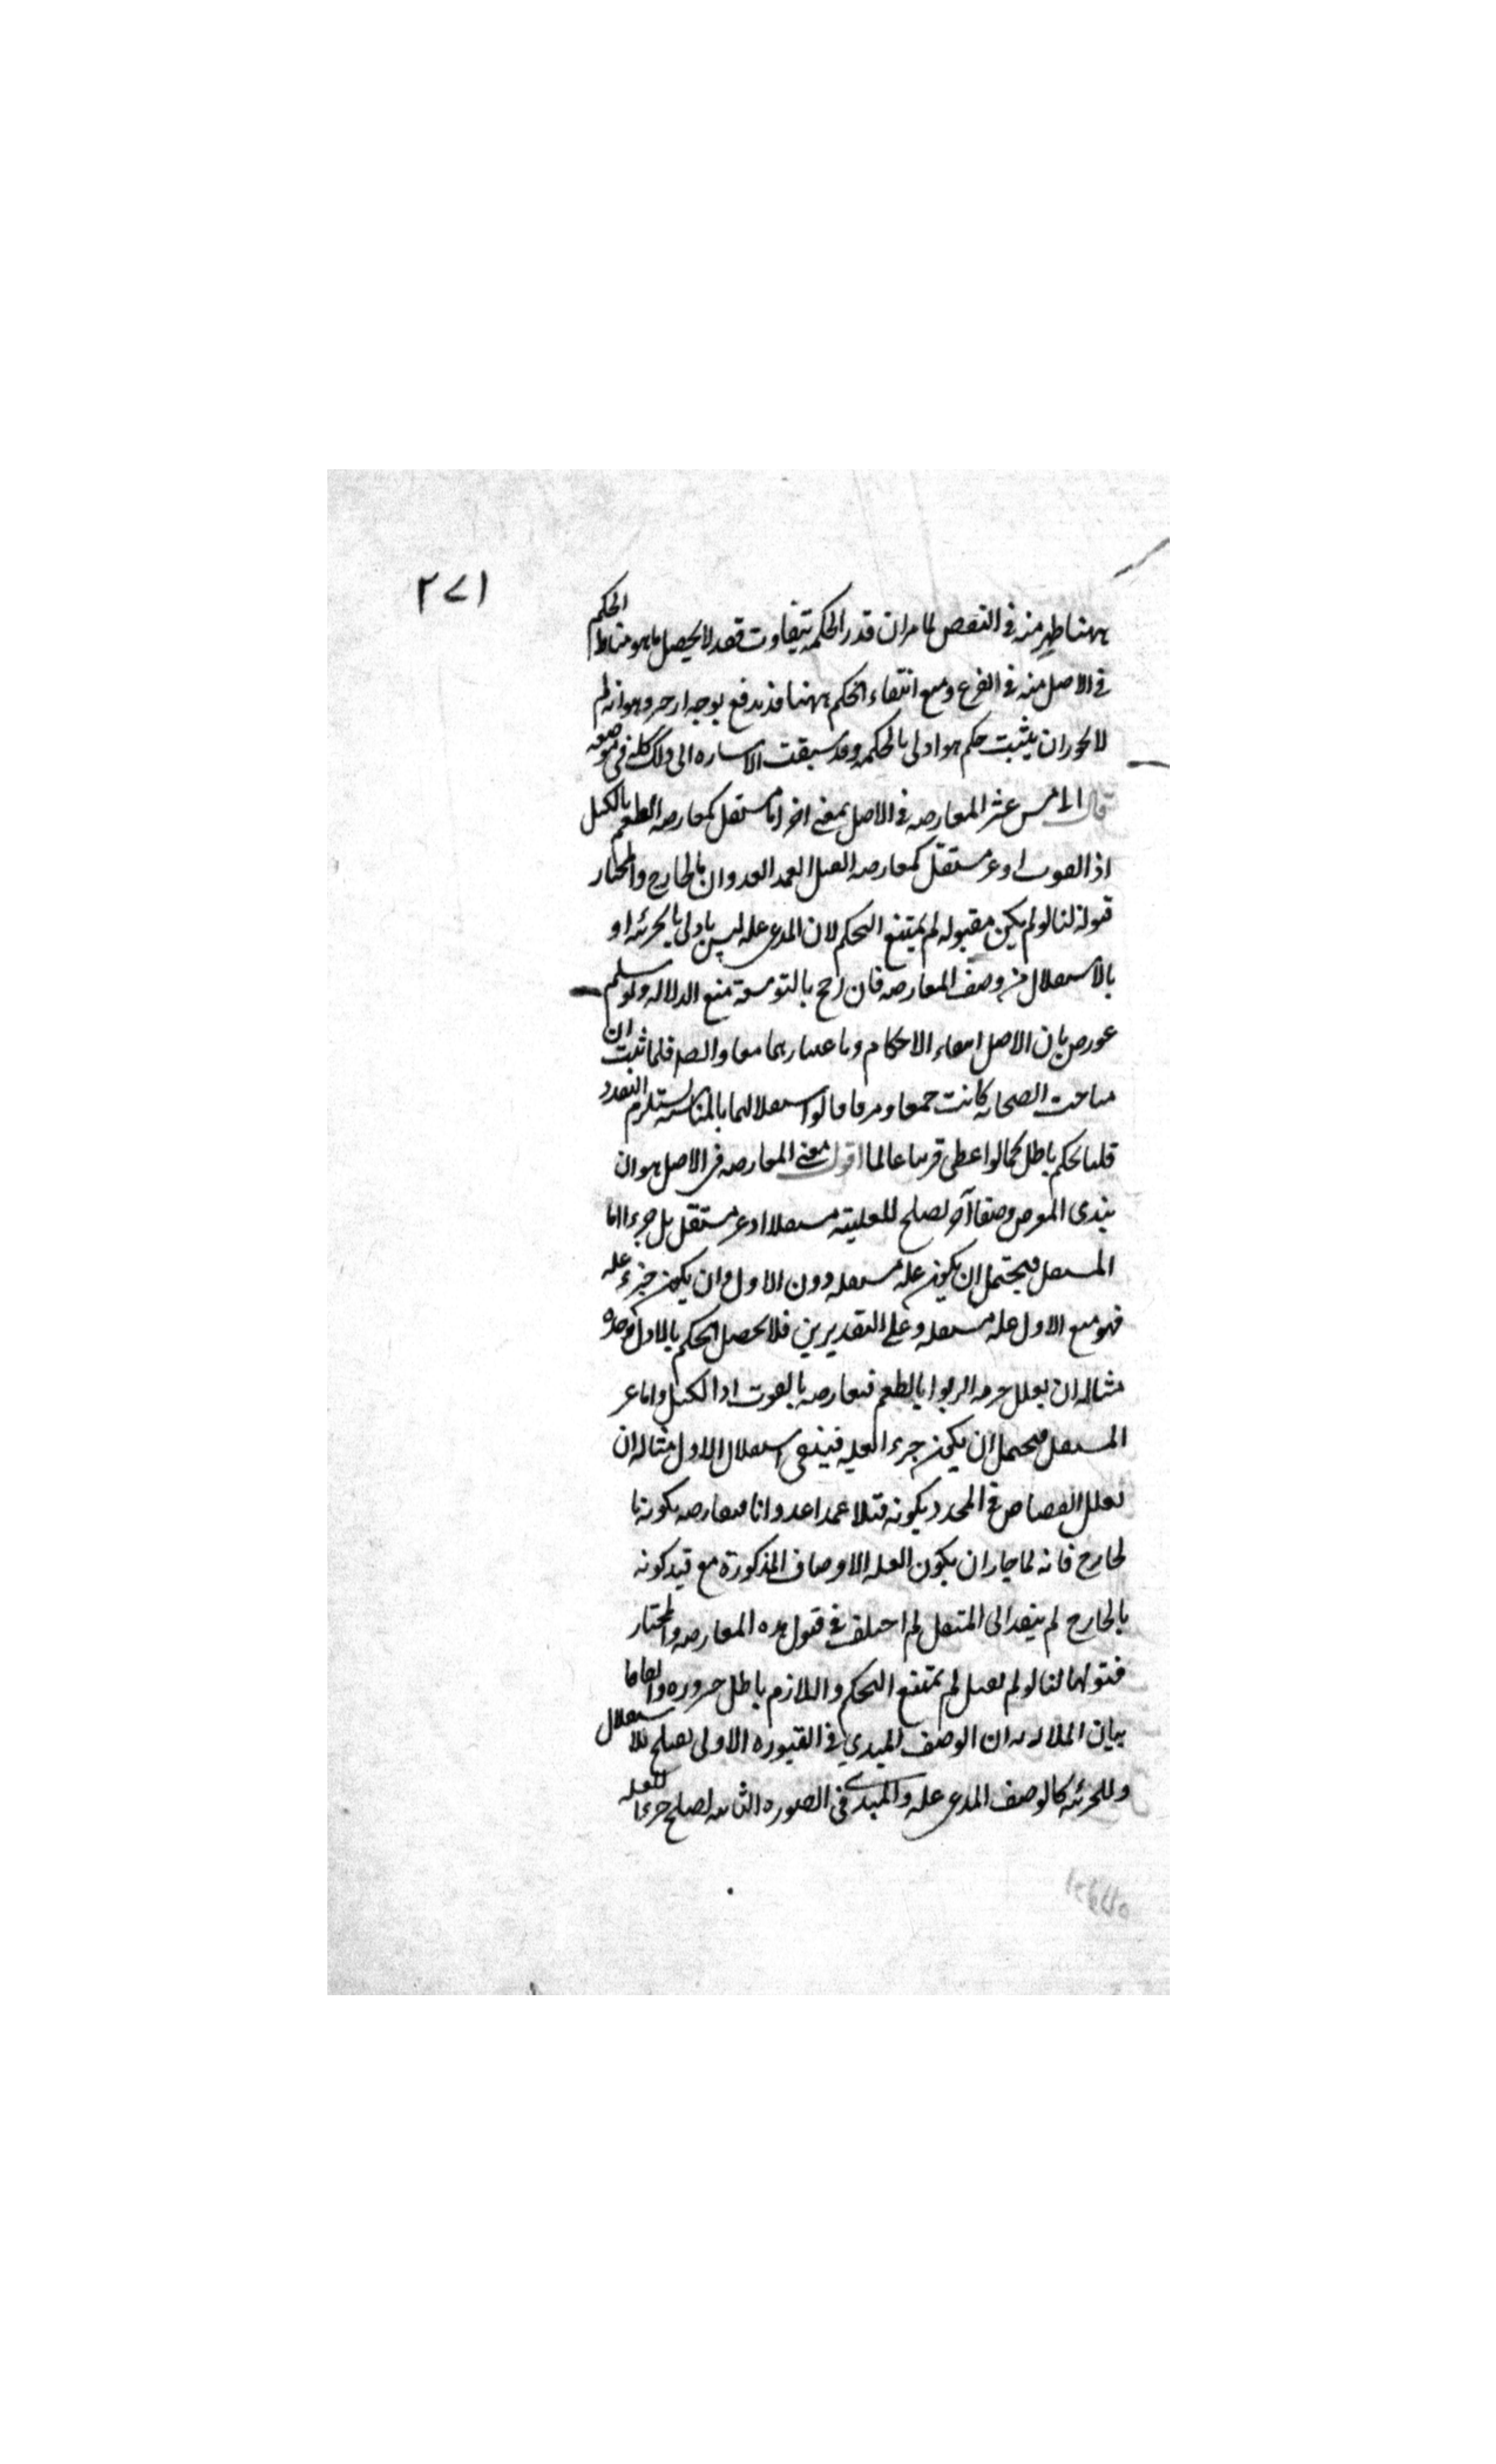 ٢٧١
ههنا اظهر منه في النقض لما مر ان قدر الحكمة تتفاوت فقد لا يحصل ما هو مناط الحكم
في الاصل منه في الفرع ومع انتفاء الحكم ههنا قد يدفع بوجه اخر وهو انه لم
لا يجوز ان يثبت حكم هو اولى بالحكمة وقد سبقت الاشاره الى ذلك كله في موضعه
قال الخامس عشر المعارضه في الاصل بمعنى اخر اما مستقل كمعارضه الطعم بالكيل
او القوت او غير مستقل كمعارضه القتل العمد العدوان بالجارح والمختار
قبوله لنا لو لم يكن مقبوله لم يمتنع التحكم لان المدعى عله ليس باولى بالجزئيه او
بالاستقلال من وصف المعارضه فان رجح بالتوسعة منع الدلاله ولو سلم
عورض بان الاصل انتفاء الاحكام وباعتبارهما معا والصد فلما ثبت ان
مباحث الصحابه كانت جمعا وفرقا قالوا استقلالهما بالمناسبه يستلزم التعدد
قلنا تحكم باطل كما لو اعطى قريبا عالما اقول معنى المعارضه في الاصل هو ان
يبدي المعترض وصفا آخر يصلح للعلية مستقلا او غير مستقل بل جزء اما
المستقل فيحتمل ان يكون عله مستقله دون الاول وان يكون جزء عله
فهو مع الاول عله مستقله وعلى التقديرين فلا يحصل الحكم بالاول وحده
مثاله ان يعلل حرمه الربوا بالطعم فيعارضه بالقوت او الكيل واما غير
المستقل فيحتمل ان يكون جزء العله فينتفي استقلال الاول مثاله ان
يعلل القصاص في المحدد بكونه قتلا عمدا عدوانا فيعارضه بكونه با
لجارح فانه لما جاز ان يكون العله الاوصاف المذكورة مع قيد كونه
بالجارح لم يتعد الى المثقل ثم اختلف في قبول هذه المعارضه والمختار
قبولها لنا لو لم يقبل لم يمتنع التحكم واللازم باطل ضروره واتفاقا
بيان الملازمه ان الوصف المبدي في الصوره الاولى يصلح للاستقلال
وللجزئيه كالوصف المدعى عله والمبدى في الصوره الثانيه يصلح جزءا للعله